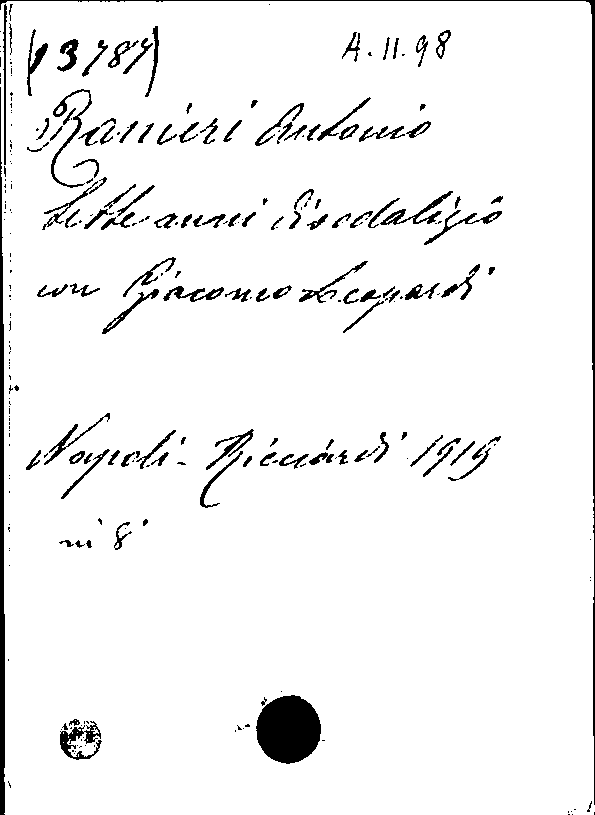 (13787)
A.II.98
Ranieri Antonio
Sette anni di sodalizio
con Giacomo Leopardi
Napoli - Ricciardi 1919
in 8°